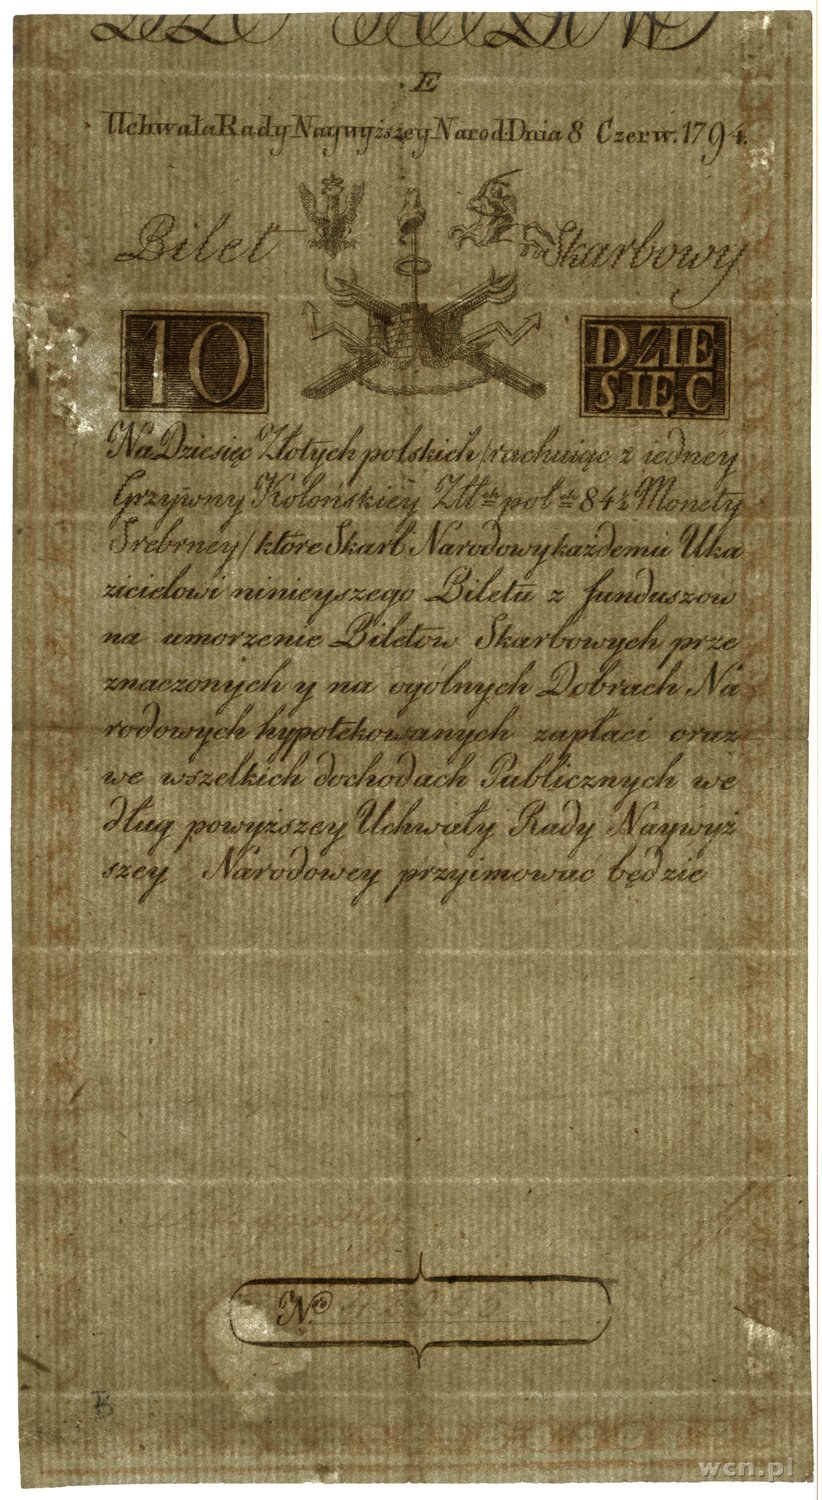 E
Uchwała Rady Naywyższey Narod. Dnia 8 Czerw. 1794.
Bilet Skarbowy
10 DZIE
SIĘC
Na Dziesięc Złotych polskich /rachuiąc z iedney
Grzywny Kolońskiey Złł ch pol ch 84½ Monety
Srebrney/ które Skarb Narodowy każdemu Uka
zicielowi ninieyszego Biletu z funduszow
na umorzenie Biletow Skarbowych prze
znaczonych y na ogólnych Dobrach Na
rodowych hypotekowanych zapłaci oraz
we wszelkich dochodach Publicznych we
dług powyższey Uchwały Rady Naywyż
szey Narodowey przyimować będzie
N.ro
B
wcn.pl